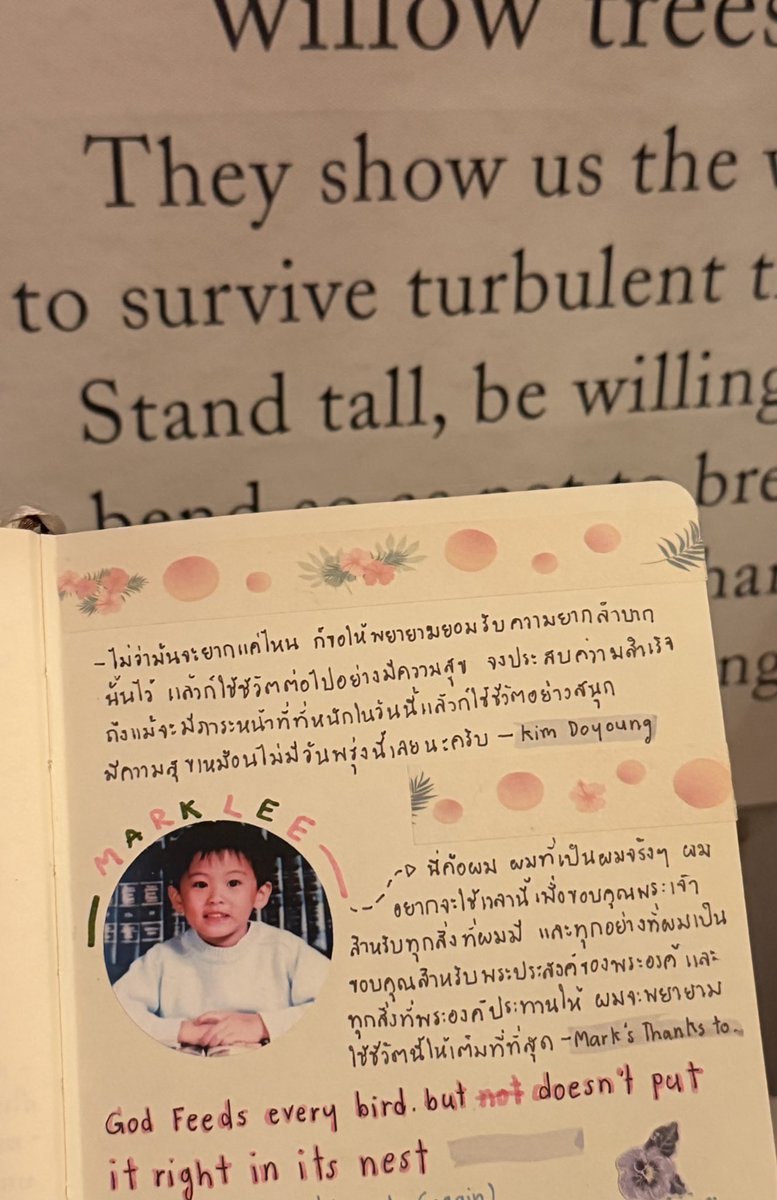 willow trees
They show us the
to survive turbulent
Stand tall, be willing
bend so as not to bre
- ไม่ว่ามันจะยากแค่ไหน ก็ขอให้พยายามยอมรับความยากลำบาก
นั้นไว้ แล้วก็ใช้ชีวิตต่อไปอย่างมีความสุข จงประสบความสำเร็จ
ถึงแม้จะมีภาระหน้าที่ที่หนักในวันนี้แล้วก็ใช้ชีวิตอย่างสนุก
มีความสุขเหมือนไม่มีวันพรุ่งนี้เลยนะครับ - Kim Doyoung
MARK LEE
นี่คือผม ผมที่เป็นผมจริงๆ ผม
อยากจะใช้เวลานี้เพื่อขอบคุณพระเจ้า
สำหรับทุกสิ่งที่ผมมี และทุกอย่างที่ผมเป็น
ขอบคุณสำหรับพระประสงค์ของพระองค์ และ
ทุกสิ่งที่พระองค์ประทานให้ ผมจะพยายาม
ใช้ชีวิตนี้ให้เต็มที่ที่สุด - Mark's Thanks to.
God Feeds every bird. but not doesn't put
it right in its nest
(again)